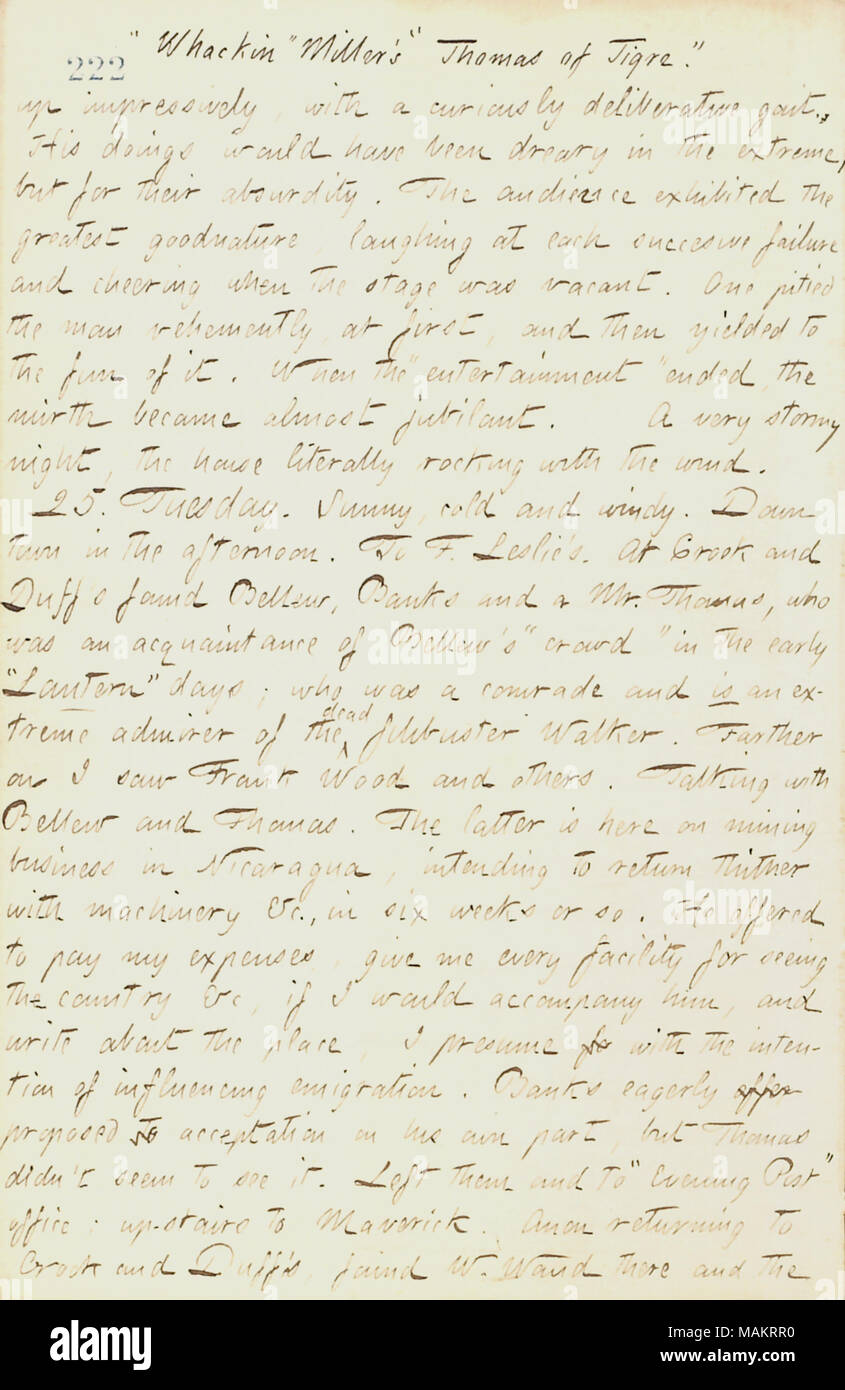 "Whackin" Miller's "Thomas of Tigre."
222
up impressively, with a curiously deliberative gait.
His doings would have been dreary in the extreme,
but for their absurdity. The audience exhibited the
greatest goodnature, laughing at each succesive failure
and cheering when the stage was vacant. One pitied
the man vehemently, at first, and then yielded to
the fun of it. When the "entertainment" ended, the
mirth became almost jubilant. A very stormy
night, the house literally rocking with the wind.
25. Tuesday. Sunny, cold and windy. Down
town in the afternoon. To F. Leslie's. At Crook and
Duff's found Bellew, Banks and a Mr. Thomas, who
was an acquaintance of Bellew's "crowd" in the early
"Lantern" days; who was a comrade and is an ex-
treme admirer of the dead filibuster Walker. Farther
on I saw Frank Wood and others. Talking with
Bellew and Thomas. The latter is here on mining
business in Nicaragua, intending to return thither
with machinery &c., in six weeks or so. He offered
to pay my expenses, give me every facility for seeing
the country &c, if I would accompany him, and
write about the place, I presume for with the inten-
tion of influencing emigration. Banks eagerly offer
proposed to acceptation on his own part, but Thomas
didn't seem to see it. Left them and to "Evening Post"
office; up-stairs to Maverick. Anon returning to
Crook and Duff's, found W. Waud there and the
alamy
Image ID: MAKRR0
www.alamy.com